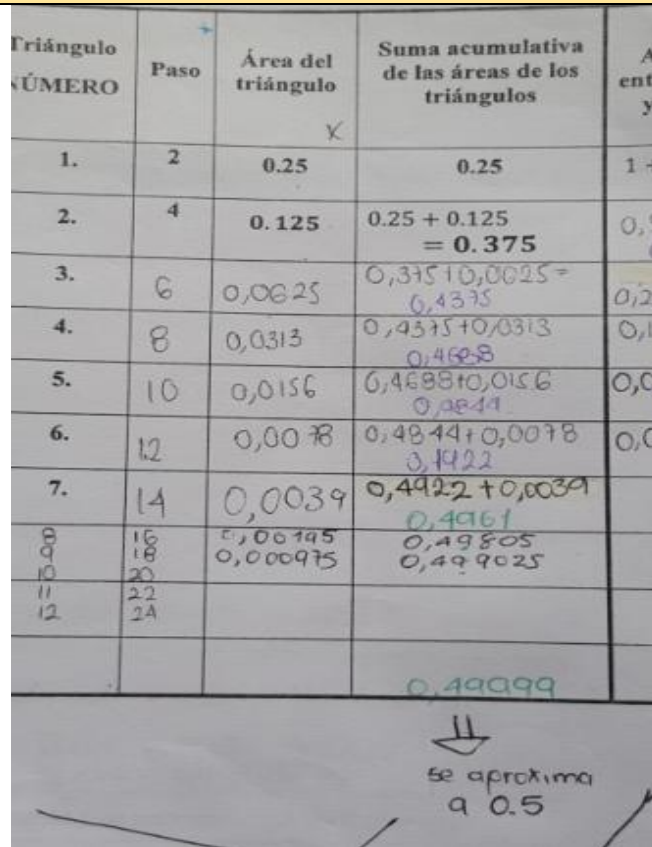 Triángulo NÚMERO Paso Área del triángulo Suma acumulativa de las áreas de los triángulos
x
1. 2 0.25 0.25 1
2. 4 0.125 0.25 + 0.125 = 0.375 0,
3. 6 0,0625 0,375+0,0625= 0,4375 0,2
4. 8 0,0313 0,4375+0,0313 0,4688 0,1
5. 10 0,0156 0,4688+0,0156 0,4844 0,0
6. 12 0,0078 0,4844+0,0078 0,4922 0,0
7. 14 0,0039 0,4922+0,0039 0,4961
8 16 0,00195 0,49805
9 18 0,000975 0,499025
10 20
11 22
12 24
0,49999
se aproxima
a 0.5